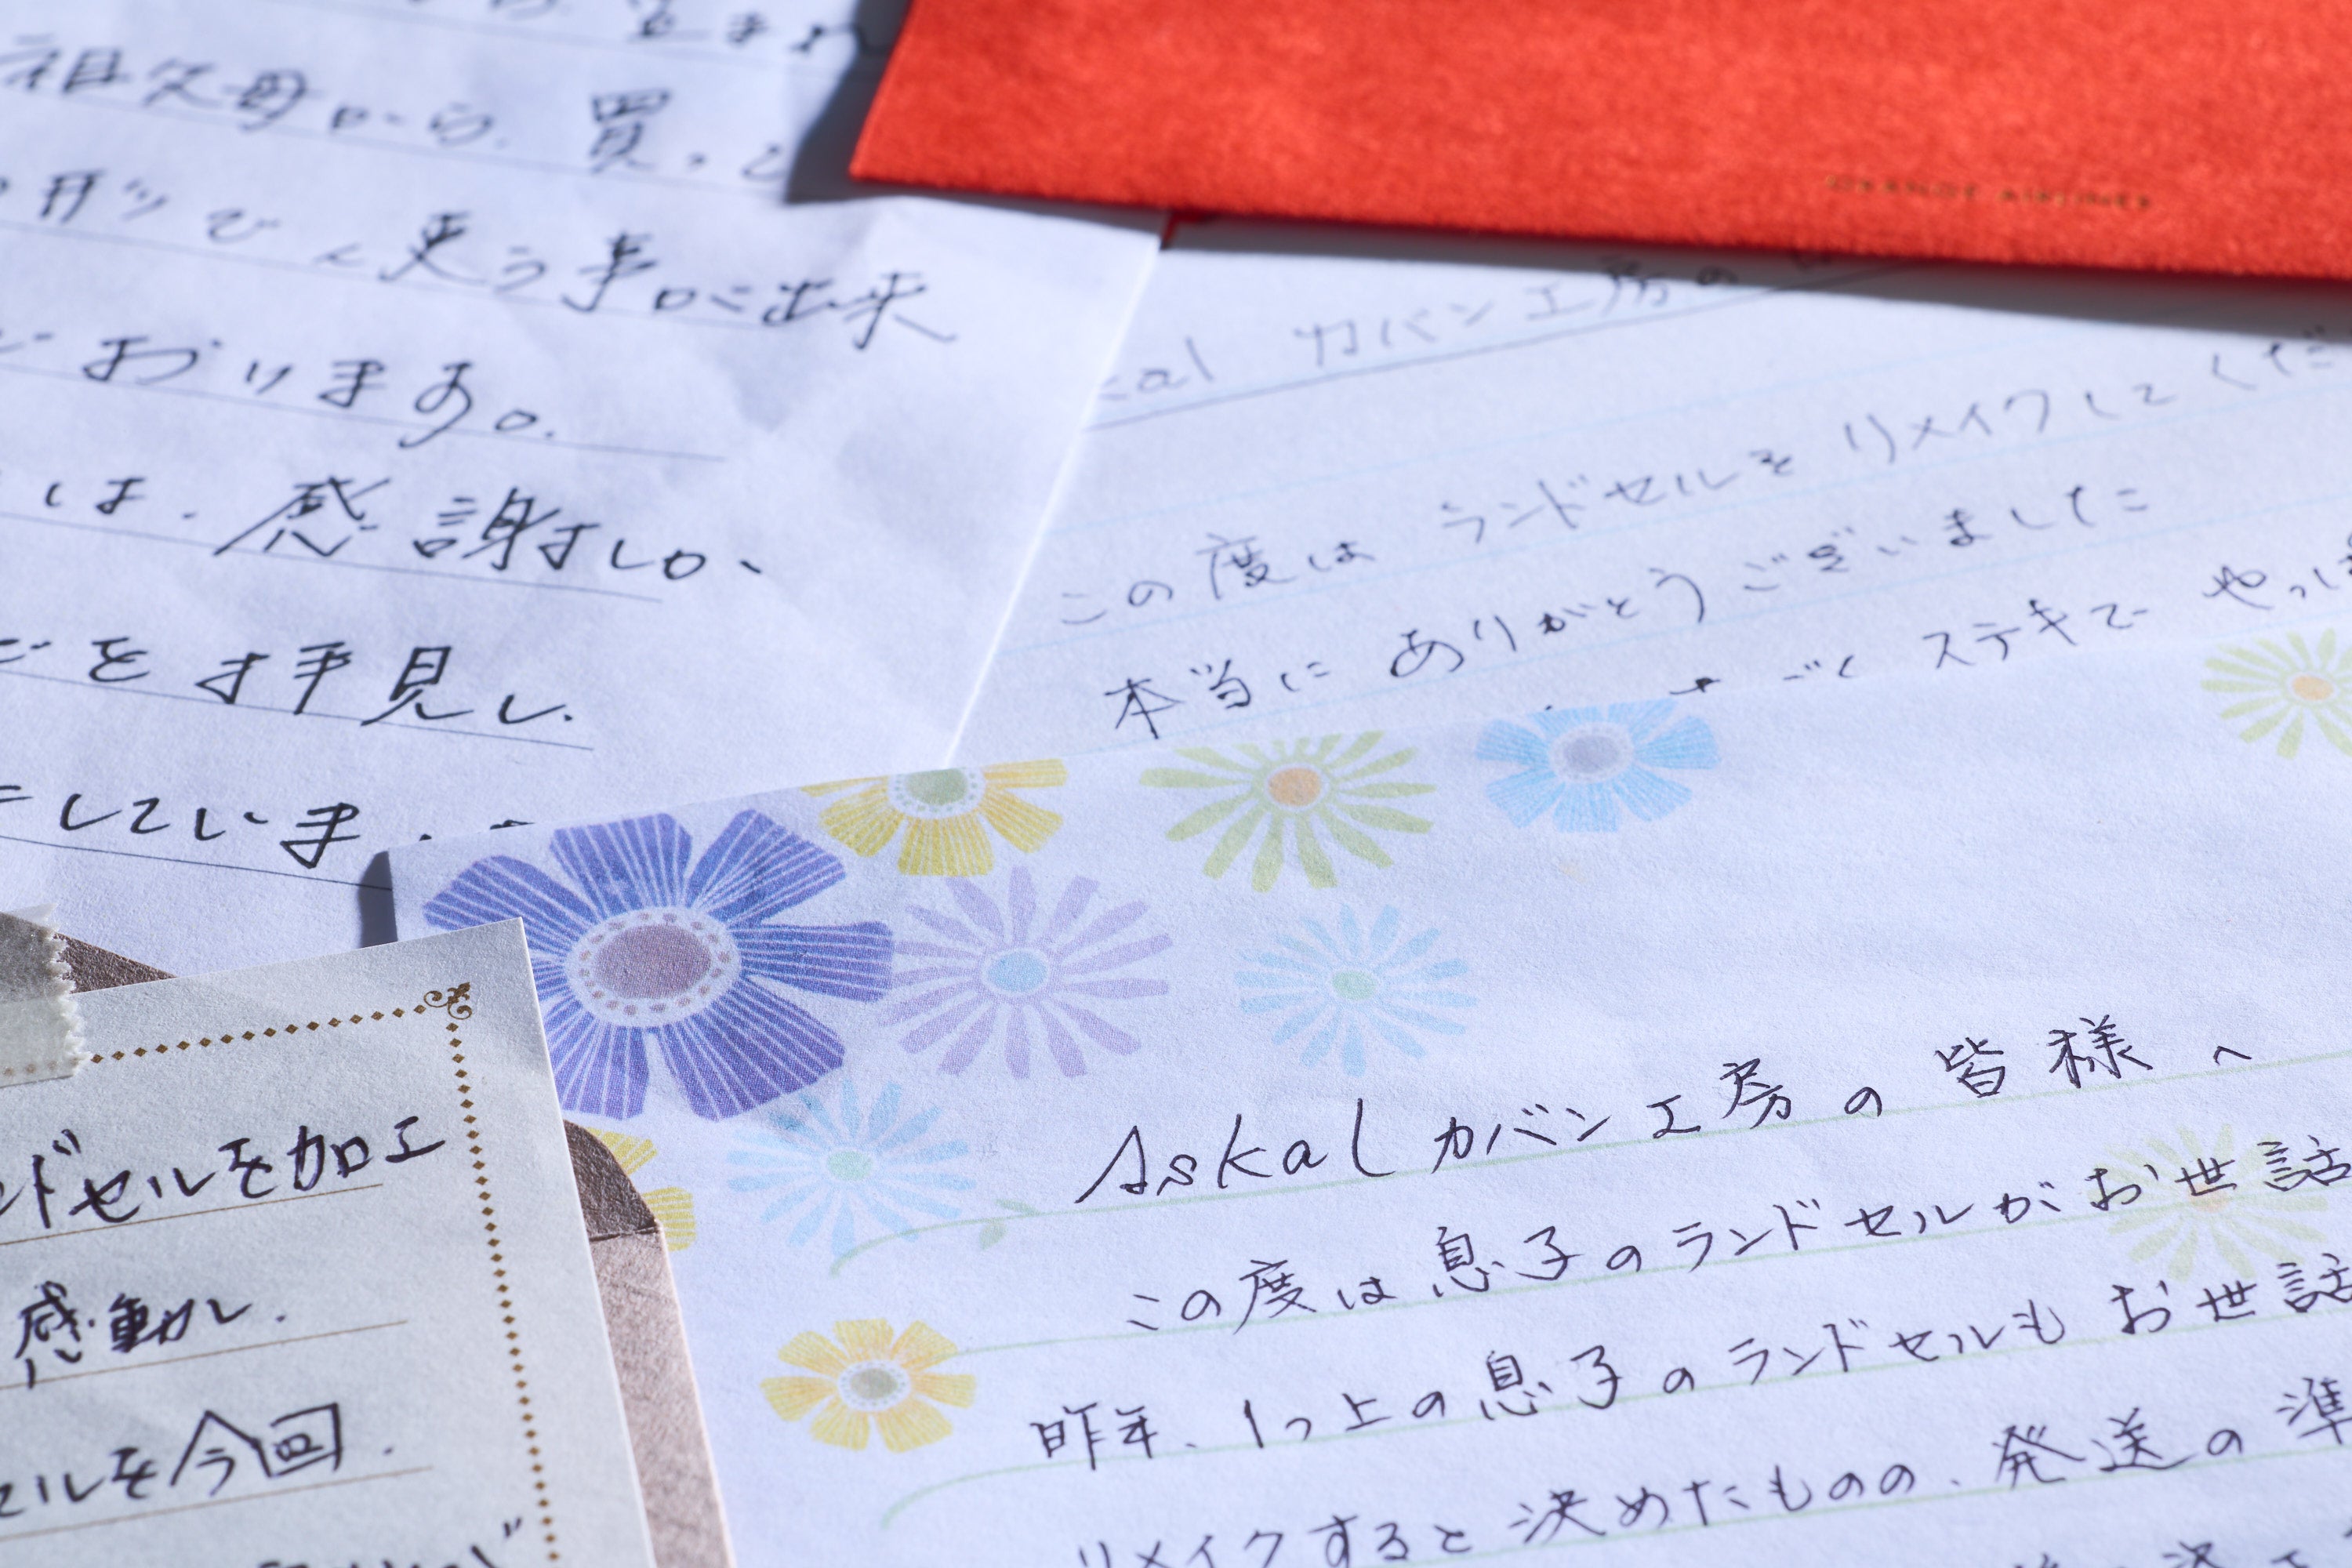 祖父母から、買っ
使う事に出来
ております。
は、感謝しか、
を拝見し、
していま
カバン工房の
この度は ランドセルを リメイクして くだ
本当に ありがとう ございました
ステキで やっぱ
ドセルを加工
感動し、
セルを今回、
Askal カバン工房の皆様へ
この度は息子のランドセルがお世話
昨年、1つ上の息子のランドセルもお世話
リメイクすると決めたものの、発送の準